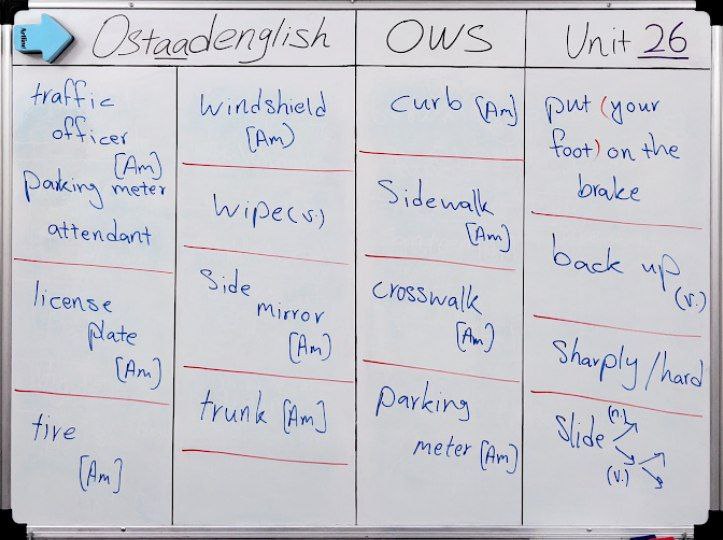 Artline
Ostaadenglish
OWS
Unit 26
traffic
officer
[Am]
parking meter
attendant
license
plate
[Am]
tire
[Am]
windshield
[Am]
wipe (v.)
Side
mirror
[Am]
trunk [Am]
curb [Am]
Sidewalk
[Am]
crosswalk
[Am]
parking
meter [Am]
put (your
foot) on the
brake
back up
(v.)
Sharply/hard
Slide (n.)
(v.)